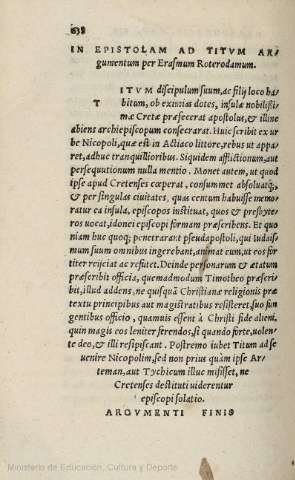 638
IN EPISTOLAM AD TITVM AR/
gumentum per Erasmum Roterodamum.
TITVM discipulum suum, ac filij loco ha/
bitum, ob eximias dotes, insulæ nobilissi/
mæ Cretæ præfecerat apostolus, & illinc
abiens archiepiscopum consecrarat. Huic scribit ex ur
be Nicopoli, quæ est in Actiaco littore, rebus ut appa/
ret, adhuc tranquillioribus. Siquidem afflictionum, aut
persequutionum nulla mentio. Monet autem, ut quod
ipse apud Cretenses cœperat, consummet absoluatq́;,
& per singulas ciuitates, quas centum habuisse memo/
ratur ea insula, episcopos instituat, quos & presbyte/
ros uocat, idonei episcopi formam præscribens. Et quo
niam huc quoq; penetrarant pseudapostoli, qui Iudais/
mum suum omnibus ingerebant, animat eum, ut eos for
titer reijciat ac refutet. Deinde personarum & ætatum
præscribit officia, quemadmodum Timotheo præscri/
bit, illud addens, ne quisquã Christianæ religionis præ
textu principibus aut magistratibus resisteret suo fun
gentibus officio, quamuis essent à Christi fide alieni,
quin magis eos leniter ferendos, si quando forte, uolen/
te deo, & illi resipiscant. Postremo iubet Titum ad se
uenire Nicopolim, sed non prius quàm ipse Ar/
teman, aut Tychicum illuc misisset, ne
Cretenses destituti uiderentur
episcopi solatio.
ARGVMENTI FINIS
Ministerio de Educación, Cultura y Deporte